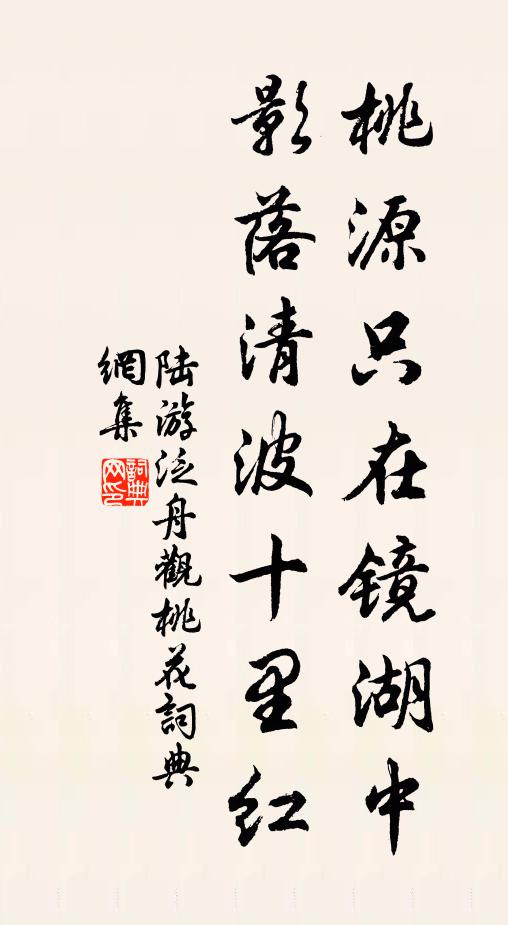 桃源只在镜湖中
影落清波十里红
陆游泛舟觀桃花詞典
網集
詞典
网印